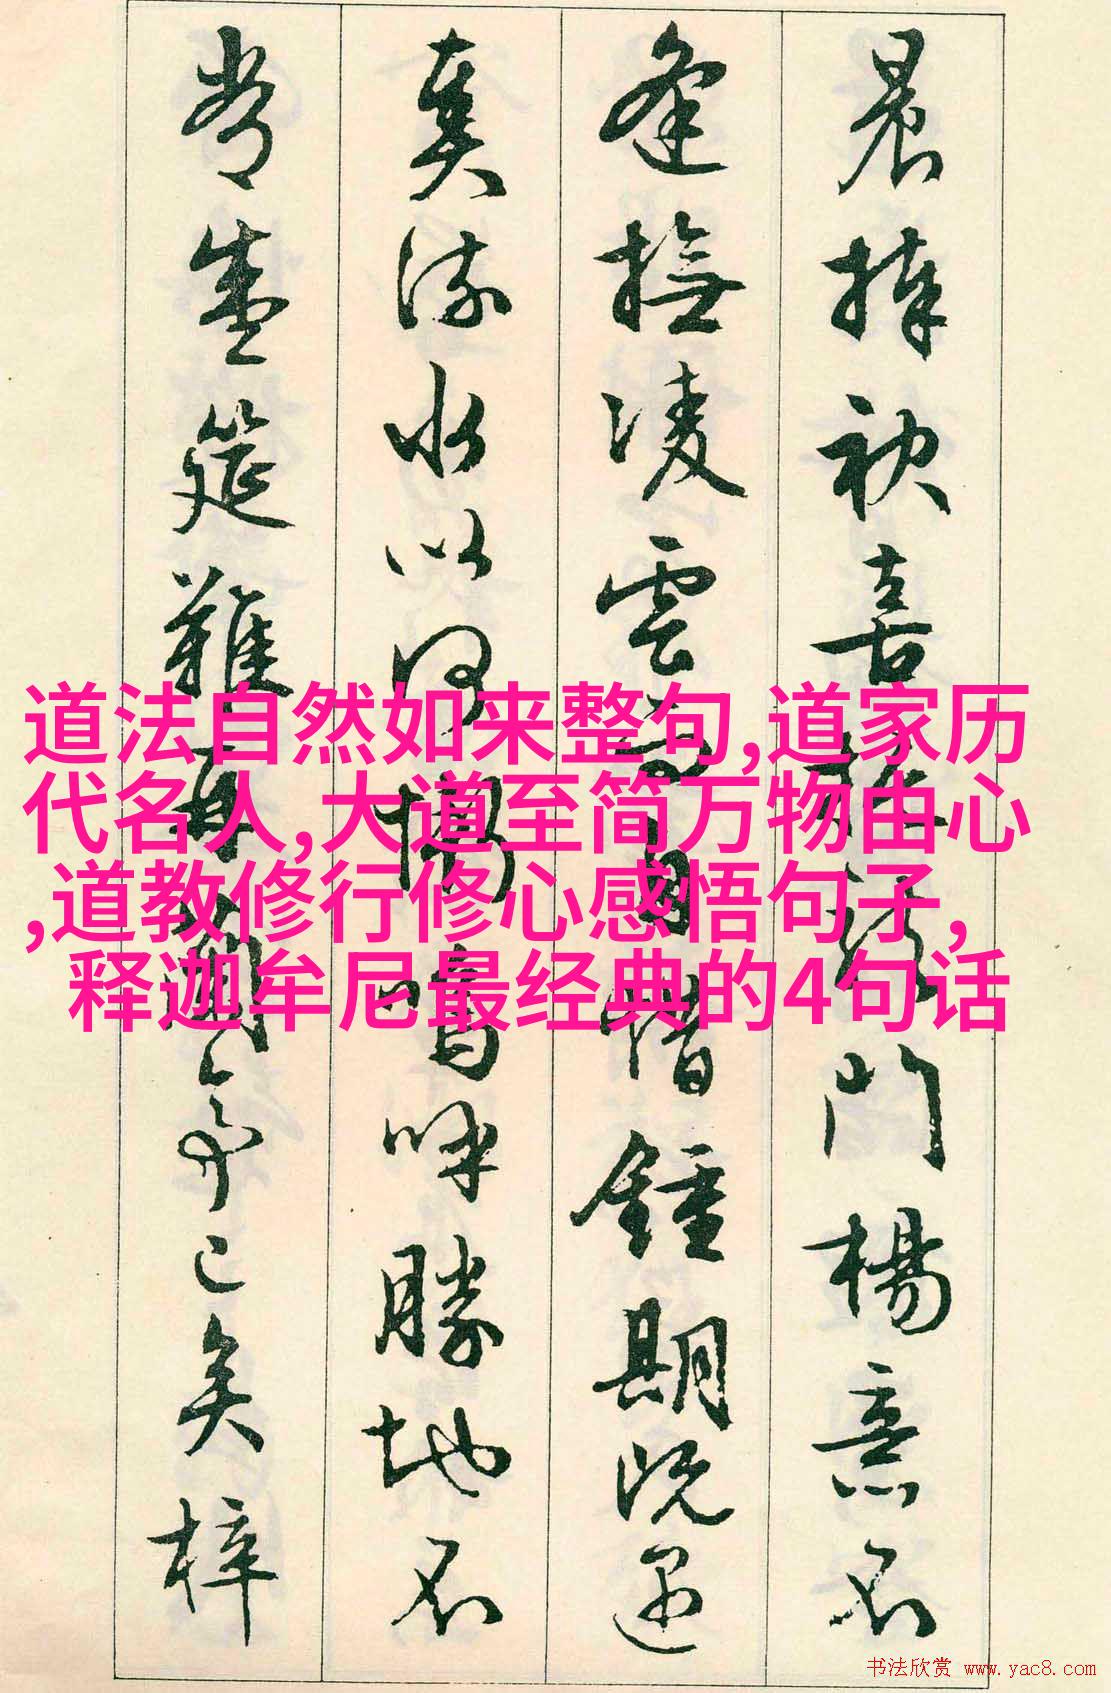 晨捧袂喜托龍門楊意不
逢撫凌雲而自惜鍾期既遇
奏流水以何慚嗚呼勝地不
常盛筵難再蘭亭已矣梓
道法自然如来整句,道家历
代名人,大道至简万物由心
,道教修行修心感悟句子,
释迦牟尼最经典的4句话
书法欣赏 www.yac8.com